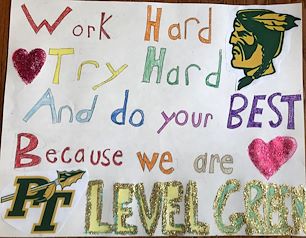 Work Hard
Try Hard
And do your BEST
Because we are
PT LEVEL GREEN